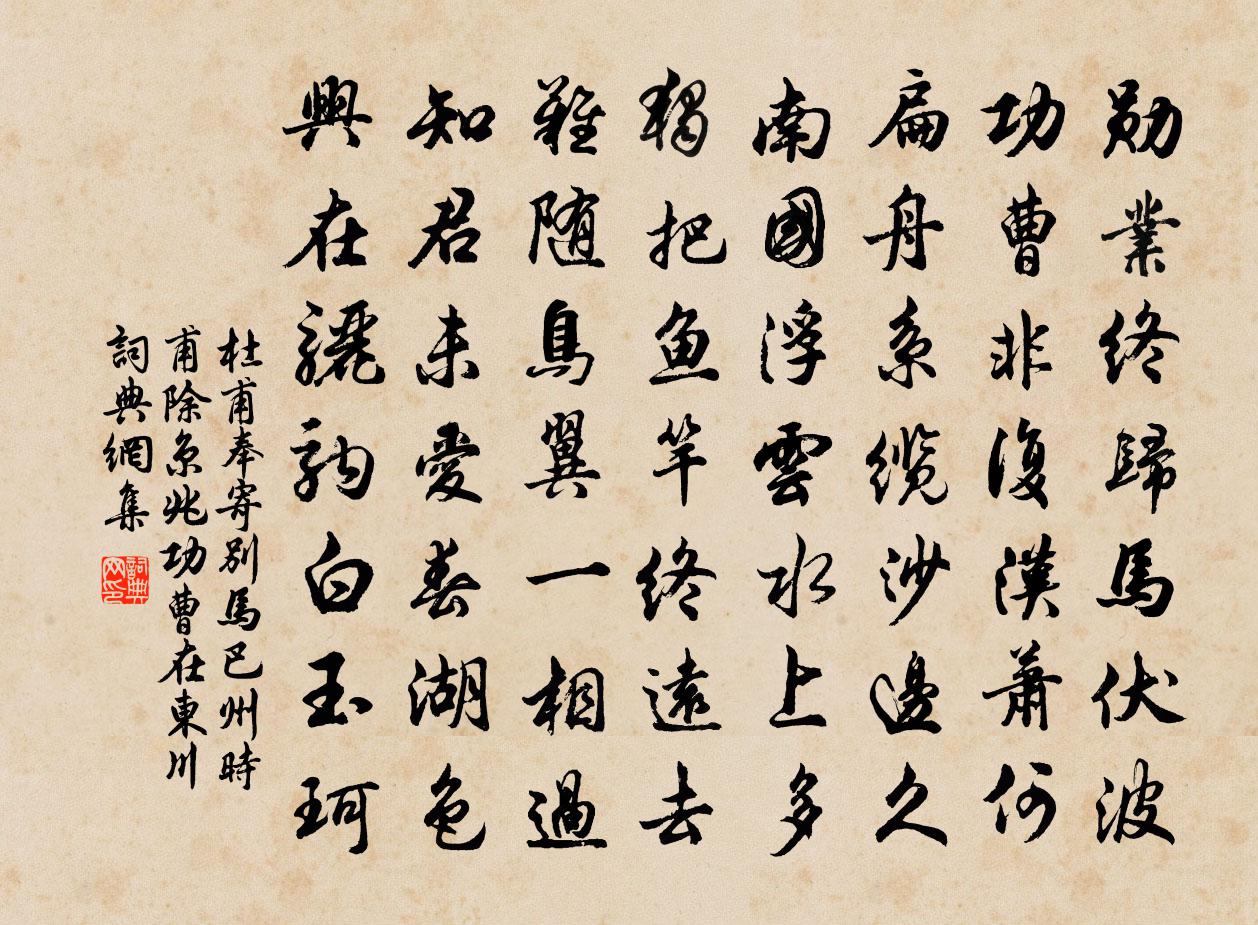 勋業终歸馬伏波
功曹非復漢蕭何
扁舟系缆沙邊久
南國浮雲水上多
獨把鱼竿终遠去
難随鳥翼一相過
知君未愛春湖色
興在驪駒白玉珂
杜甫奉寄別馬巴州時
甫除京兆功曹在東川
詞典網集
詞典
网印